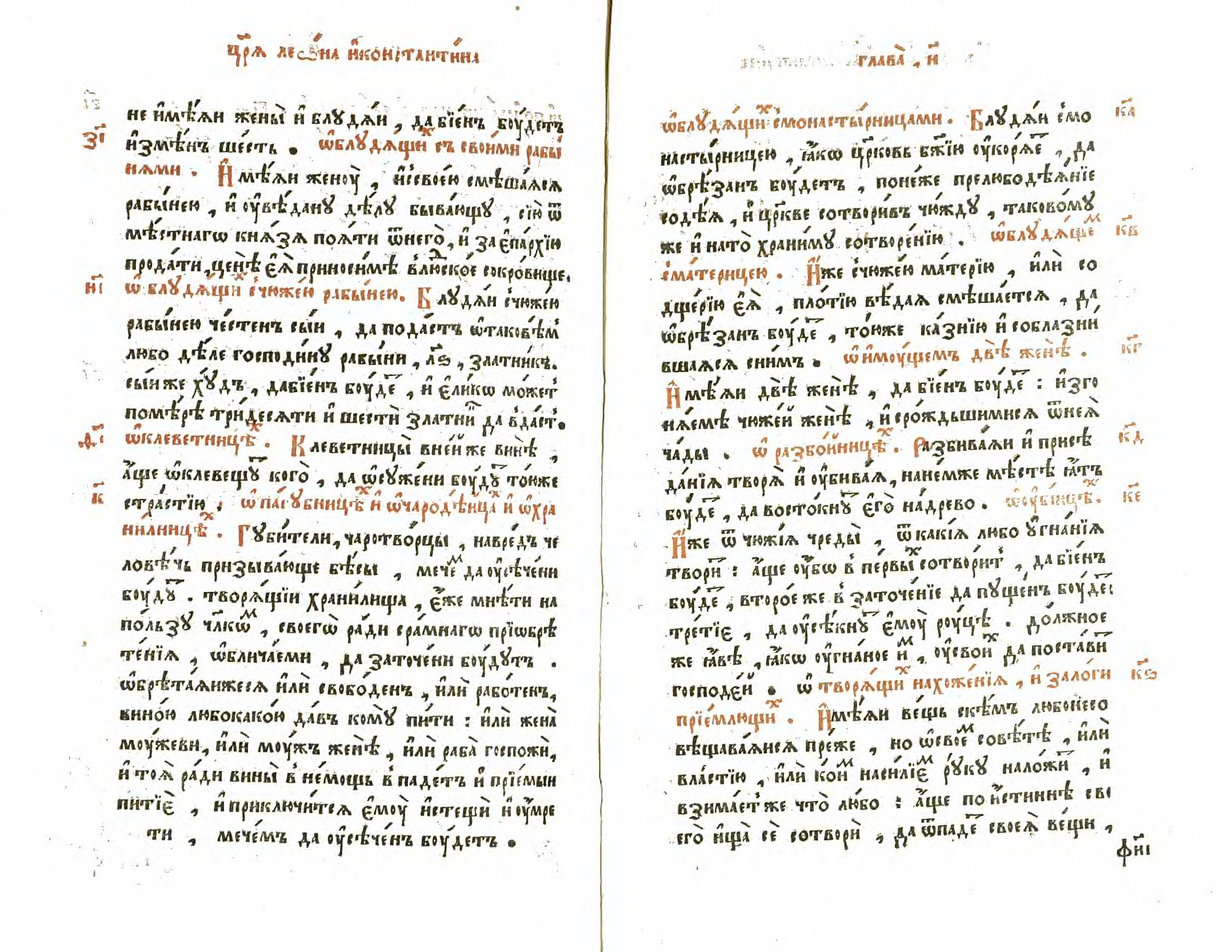 цр҃ѧ леѡ́на и҆константи́на
не и҆мѣ́ѧи жены̀ и҆ блудѧ́и , да бїе́нъ боу́детъ
з҃і и҆змѣ́нъ ше́сть . ѡ҆блудѧ́щихъ съ свои́ми рабы́
нѧми . И҆мѣ́ѧи женоу̀ , и҆ своею смѣша́ѧсѧ
рабы́нею , и҆ ᲂу҆вѣ́дану дѣ́лу быва́ющу , сїю̀ ѿ
мѣ́стнагѡ кнѧ́зѧ поѧ́ти ѿнего̀ , и҆ за є҆па́рхїю
прода́ти , цѣнѣ̀ є҆ѧ̀ приноси́мѣ влюско́е сокро́вище .
и҃і ѡ҆ блудѧ́щихъ счюже́ю рабы́нею . Блудѧ́и счюже́ю
рабы́нею че́стенъ сы́и , да пода́стъ ѡ҆тако́вѣм
любо дѣ́ле господи́ну рабы́ни , л҃ѕ , зла́тникъ .
сы́и же ху́дъ , да бїе́нъ боу́де , и҆ є҆ли́кѡ мо́жет
помѣ́рѣ три́десѧти и҆ шестѝ злати́ц да вда́ст .
ѳ҃і ѡ҆клеветницѣ́х . Клеветницы̀ вне́и же винѣ̀ ,
а҆́ще ѡ҆клеве́щу кого̀ , да ѡ҆су́жени боу́ду то́юже
к҃ стра́стїю . ѡ҆ па́губницѣх и҆ ѡ҆чародѣ́ицах и҆ ѡ҆хра
ни́лницѣх . Губи́тели , чаротво́рцы , на вре́дъ че
ловѣ́чь призыва́юще бѣ́сы , мече́м да ᲂу҆сѣ́чени
боу́ду . творѧ́щїи храни́лища , є҆́же мнѣ́ти на
по́льзу чл҃кѡ́м , своегѡ̀ ра́ди сра́мнагѡ прїѡбрѣ
те́нїѧ , ѡ҆блича́еми , да заточе́ни боу́дутъ .
ѡ҆брѣта́ѧижесѧ и҆лѝ свобо́денъ , и҆лѝ рабо́тенъ ,
вино́ю любокако́ю да́въ кому̀ пи́ти : и҆лѝ жена̀
моу́жеви , и҆лѝ моу́жъ женѣ̀ , и҆лѝ раба̀ госпожѝ ,
и҆ тоѧ̀ ра́ди вины̀ в не́мощь впаде́тъ и҆ прїе́мыи
питїѐ , и҆ приключи́тсѧ є҆моу̀ и҆стещѝ и҆ ᲂу҆мре
ти , мече́мъ да ᲂу҆сѣ́че́нъ боу́детъ .
глава̀ , и҃
ѡ҆блудѧ́щих смонасты́рницами . Блудѧ́и смо к҃а
насты́рницею , ꙗ҆́кѡ цр҃ковь бж҃їю ᲂу҆корѧ́е , да
ѡ҆брѣ́занъ боу́детъ , поне́же прелюбодѣѧ́нїе
содѣ́ѧ , и҆ цр҃кве сотвори́въ чю́жду , таково́му
же и҆ на то̀ храни́му сотворе́нїю . ѡ҆блудѧ́щем к҃в
сма́терицею . И҆́же счюже́ю ма́терїю , и҆лѝ со
дще́рїю є҆ѧ̀ , пло́тїю вѣ́даѧ смѣша́етсѧ , да
ѡ҆брѣ́занъ боу́де , то́юже ка́знїю и҆ соблазни́
вшаѧсѧ сни́мъ . ѡ҆ и҆моу́щемъ двѣ̀ женѣ̀ . к҃г
И҆мѣ́ѧи двѣ̀ женѣ̀ , да бїе́нъ боу́де : и҆зго
нѧ́емѣ чюже́й женѣ̀ , и҆ сро́ждьшимисѧ ѿнеѧ̀
ча́ды . ѡ҆ разбо́йницѣх . Разбива́ѧи и҆ присѣ к҃д
да́нїѧ творѧ̀ и҆ ᲂу҆бива́ѧ , на не́мже мѣ́стѣ ꙗ҆́тъ
боу́де , да востокну̀ є҆го̀ на́ древо . к҃е
И҆́же ѿ чю́жїѧ чреды̀ , ѿ какі́ѧ любо ᲂу҆гна́нїѧ
твори́т : а҆́ще ᲂу҆́бѡ в пе́рвых сотвори́т , да бїе́нъ
боу́де , второ́е же в заточе́нїе да пу́щенъ боу́де :
тре́тїе , да ᲂу҆сѣ́кну є҆моу̀ роу́цѣ . до́лжное
же ꙗ҆́вѣ , ꙗ҆́кѡ ᲂу҆гна́ное и҆́м , ᲂу҆ свои́х да поста́ви
господе́й . ѡ҆ творѧ́щих нахоже́нїѧ , и҆ зало́ги к҃ѕ
прїе́млющих . И҆мѣ́ѧи ве́щь ске́мъ любо несо
вѣщава́ѧисѧ пре́же , но ѡ҆ свое́м совѣ́тѣ , и҆лѝ
вла́стїю , и҆лѝ ко́им наси́лїе ру́ку нало́жи , и҆
взима́етже что̀ любо : а҆́ще по и҆́стиннѣ сво
его̀ и҆ща̀ сѐ сотворѝ , да ѿпаде́ своеѧ̀ ве́щи ,
фн҃і